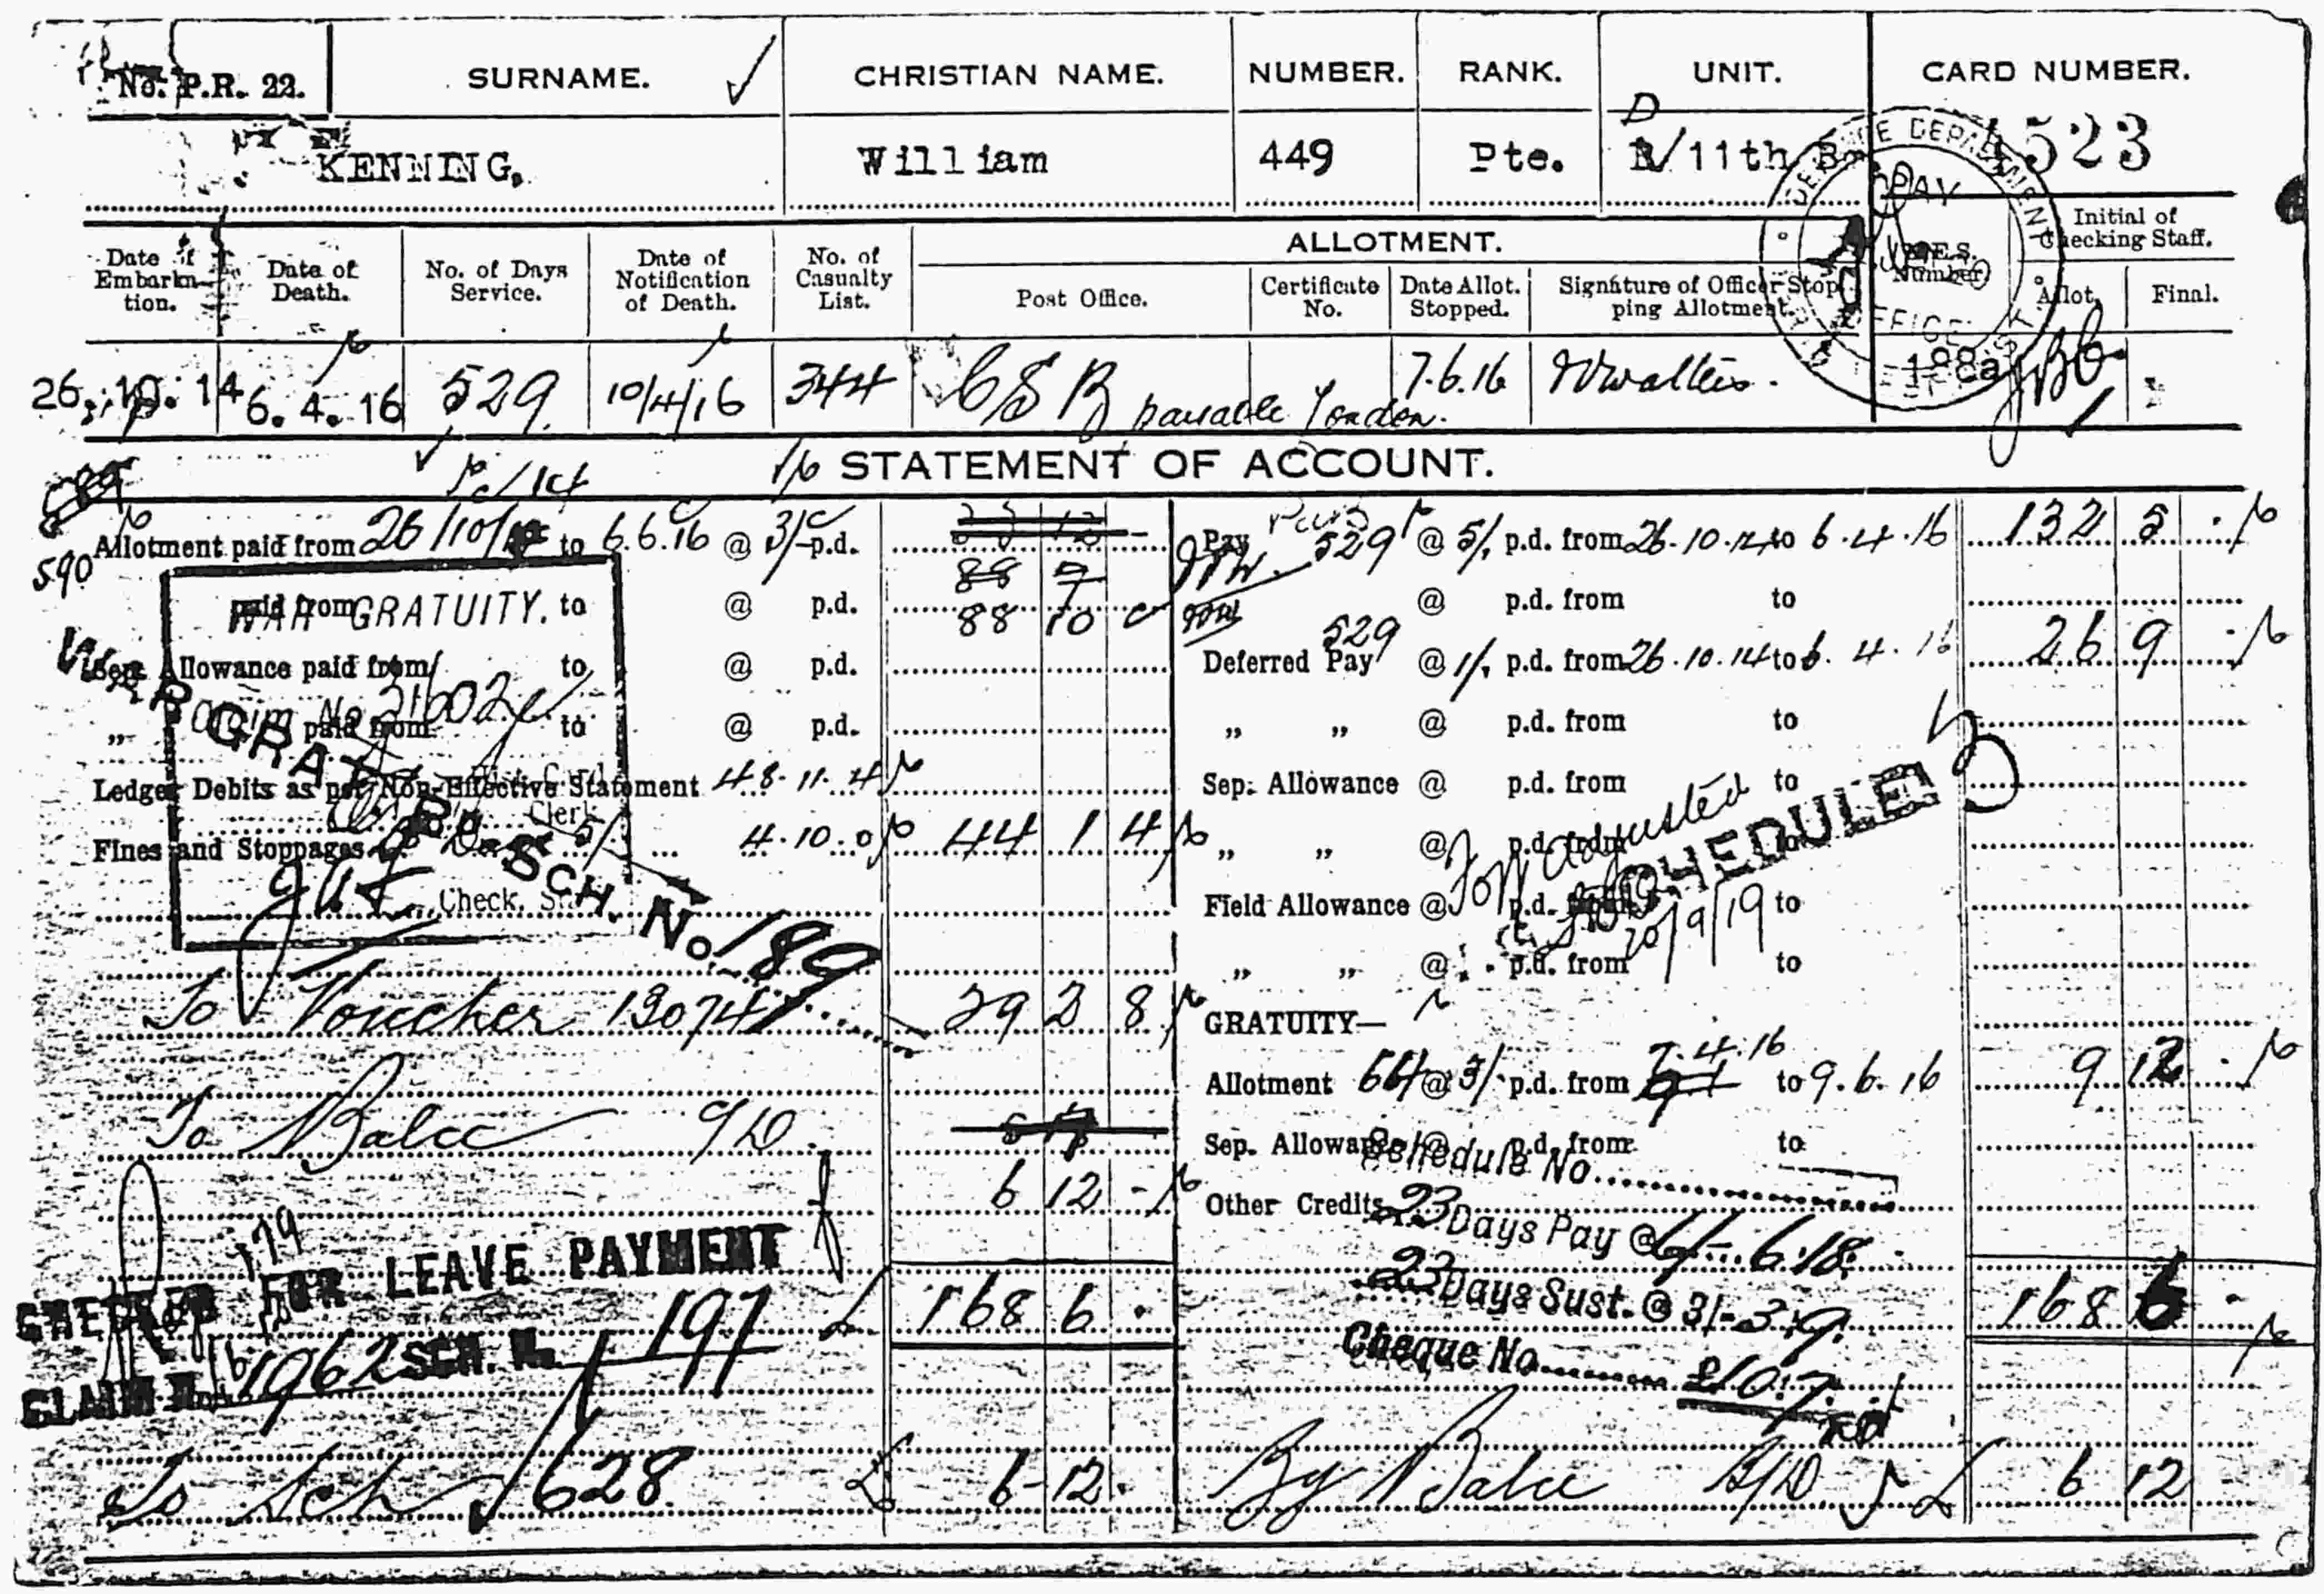 No. P.R. 22. SURNAME. CHRISTIAN NAME. NUMBER. RANK. UNIT. CARD NUMBER.
KENNING, William 449 Pte. D/11th 523
Date of Embarkation. Date of Death. No. of Days Service. Date of Notification of Death. No. of Casualty List. ALLOTMENT. Initial of Checking Staff.
Post Office. Certificate No. Date Allot. Stopped. Signature of Officer Stopping Allotment. Number Allot. Final.
DEPARTMENT PAY OFFICE
26.10.14 6.4.16 529 10/4/16 344 CSB payable London. 7.6.16 Walters. 188a
STATEMENT OF ACCOUNT.
Allotment paid from 26/10/14 to 6.6.16 @ 3/- p.d.
590
88 7
paid from to @ p.d. 88 10
WAR GRATUITY.
Sept. Allowance paid from to @ p.d.
Claim No 21602
„ paid from to @ p.d.
Ledger Debits as per Non-Effective Statement 48.11.4
Clerk
Fines and Stoppages 4.10.0 44 1 4
Check.
WAR GRATUITY SCH. No. 189
To Voucher 130747 29 2 8
To Balce 9/0
6 12 -
CHECKED FOR LEAVE PAYMENT
£ 168 6 .
CLAIM N 1962 SCH. N. 197
To Sch 628 £ 6 12 .
Pay 529 @ 5/. p.d. from 26.10.14 to 6.4.16 132 5 .
@ p.d. from to
Deferred Pay 529 @ 1/. p.d. from 26.10.14 to 6.4.16 26 9 .
„ „ @ p.d. from to
Sep. Allowance @ p.d. from to
„ „ @ p.d. from to
adjusted
SCHEDULE 3
Field Allowance @ p.d. from to
20/9/19
„ „ @ p.d. from to
GRATUITY—
Allotment 64 @ 3/- p.d. from 7.4.16 to 9.6.16 9 12 .
Sep. Allowance @ p.d. from to
Schedule No.
Other Credits
23 Days Pay @ 6/- 6.18.
23 Days Sust. @ 3/- 3.9.
168 6 -
Cheque No. £10.7.
By Balce £ 6 12